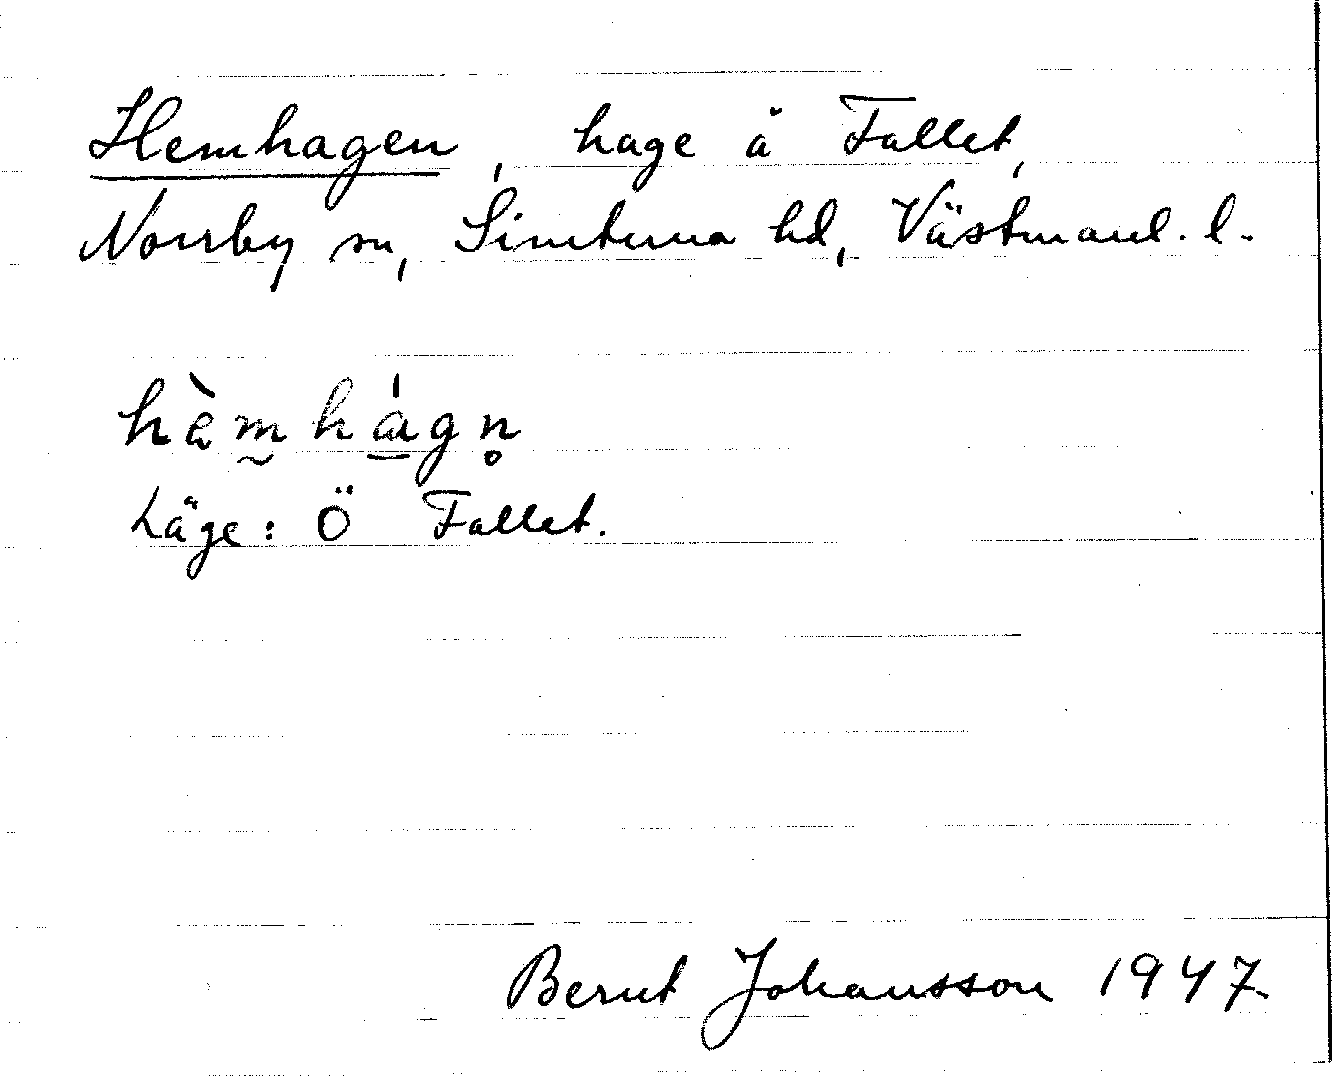 Hemhagen, hage å Fallet,
Norrby sn, Simtuna hd, Västmanl. l.
hèm̰há̱gn̥
Läge: Ö Fallet.
Bernt Johansson 1947.